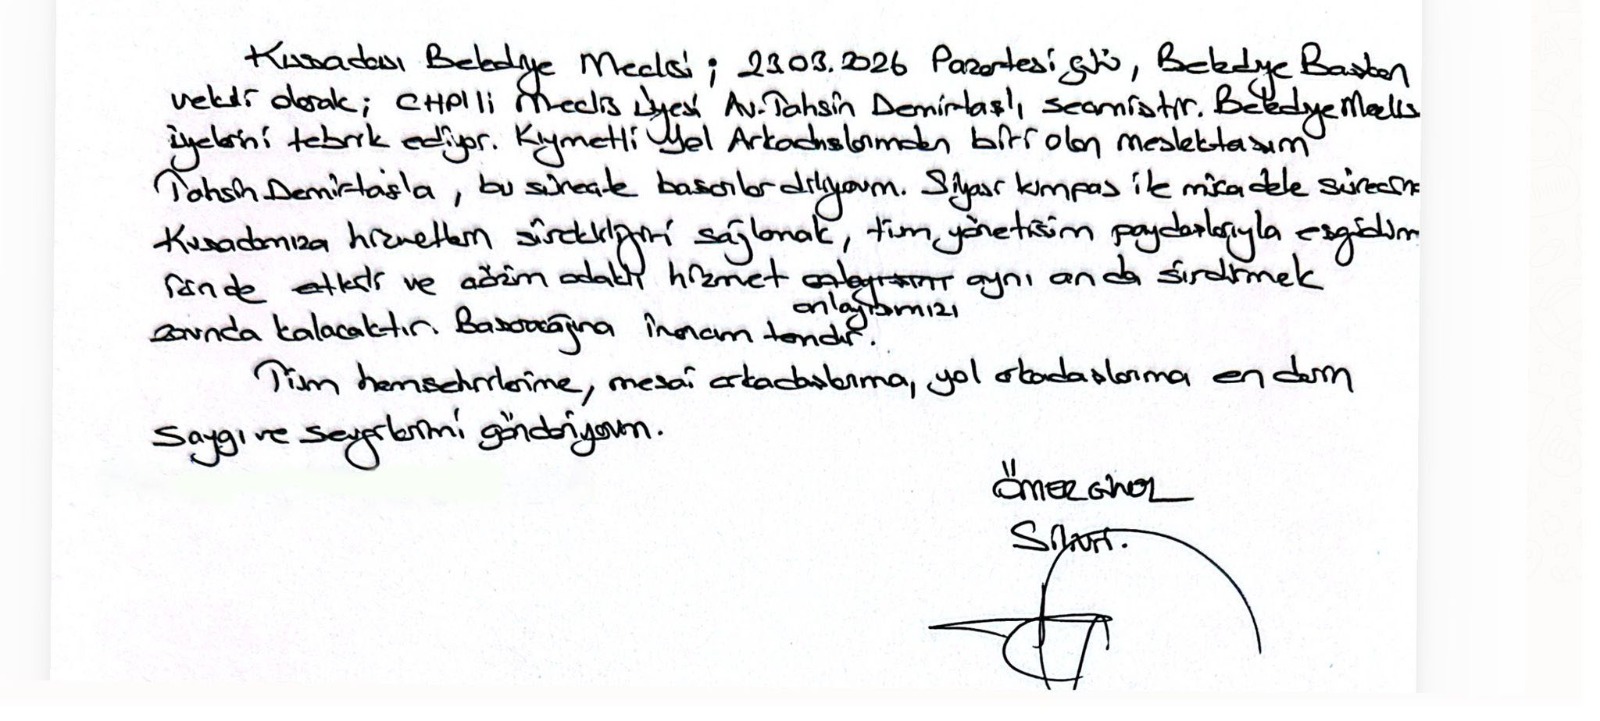 Kuşadası Belediye Meclisi; 23.03.2026 Pazartesi günü, Belediye Başkan
vekili olarak; CHP'li Meclis üyesi Av. Tahsin Demirtaşlı seçmiştir. Belediye Meclis
üyelerini tebrik ediyor. Kıymetli Yol Arkadaşlarımdan biri olan meslektaşım
Tahsin Demirtaşla, bu süreçte başarılar diliyorum. Siyasi kumpas ile mücadele sürecini
Kuşadamıza hizmetlerin sürekliliğini sağlamak, tüm yönetişim paydaşlarıyla eşgüdüm
içinde etkili ve çözüm odaklı hizmet aynı anda sürdürmek
anlayışımızı
zorunda kalacaktır. Başaracağına inancım tamdır.
Tüm hemşehrilerime, mesai arkadaşlarıma, yol arkadaşlarıma en derin
saygı ve sevgilerimi gönderiyorum.
ÖMER GÜNEL
Silivri.